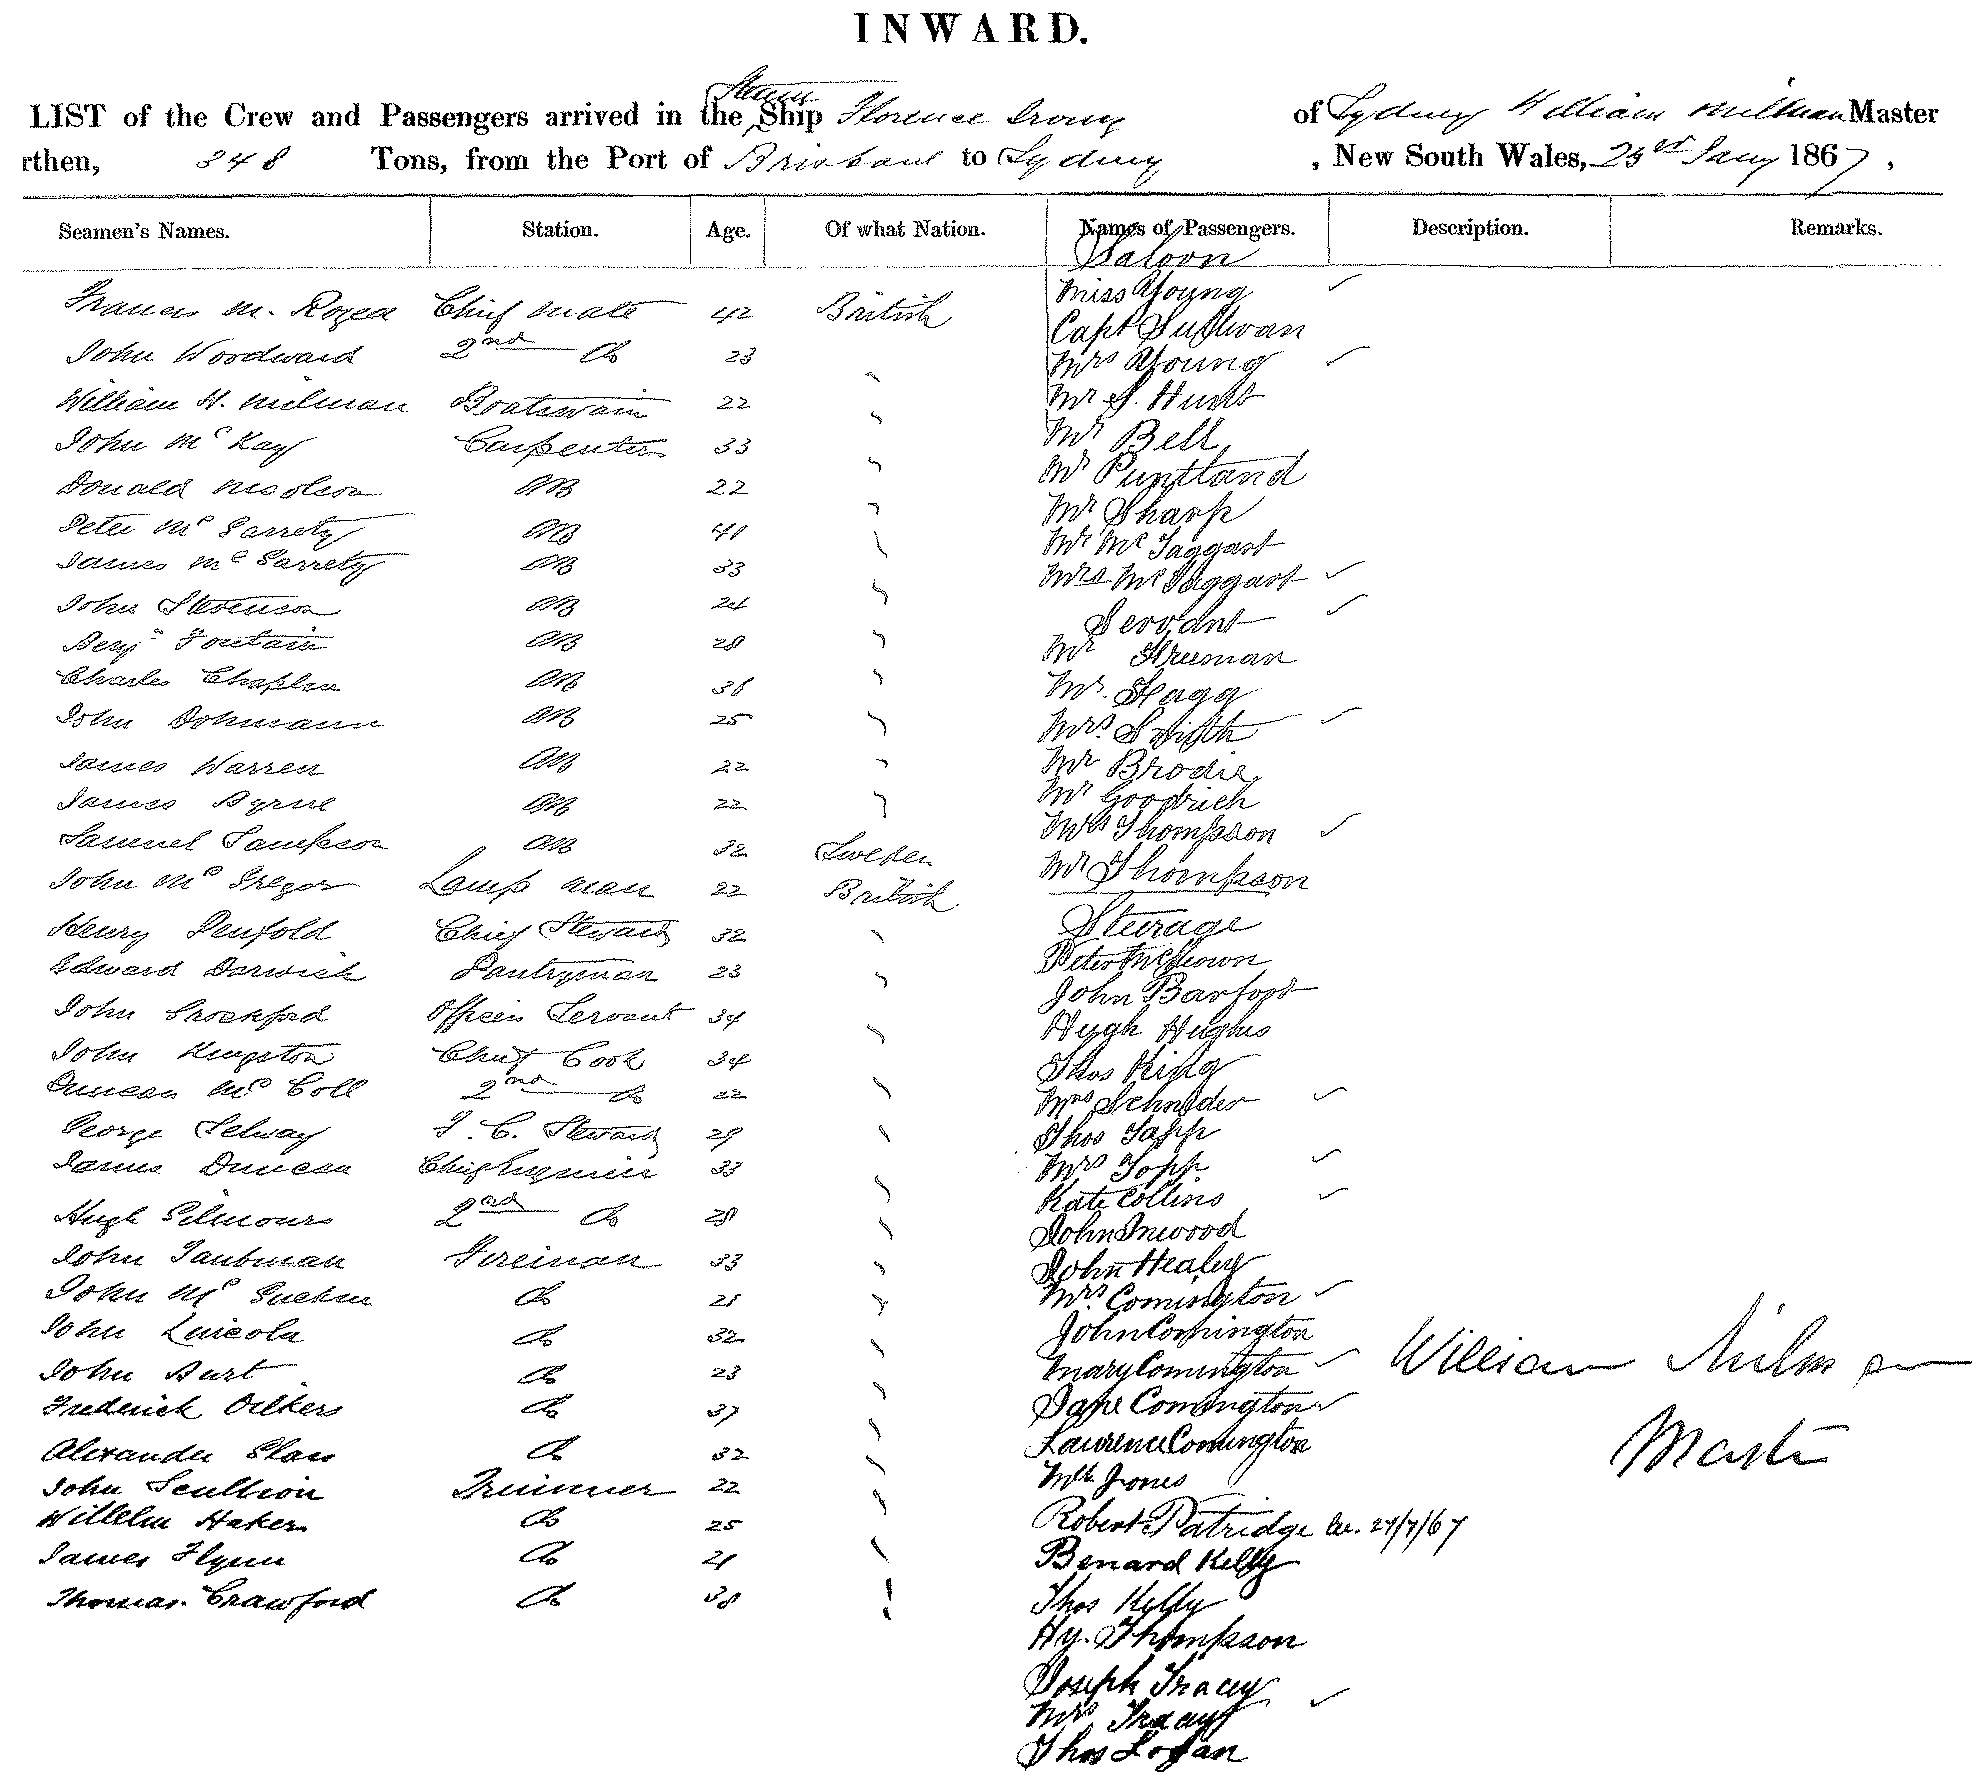 INWARD.
LIST of the Crew and Passengers arrived in the Steam Ship Florence Irving of Sydney William Milman Master
rthen, 348 Tons, from the Port of Brisbane to Sydney, New South Wales, 23rd Jany 1867,
Seamen's Names. Station. Age. Of what Nation. Names of Passengers. Description. Remarks.
Saloon
Francis M. Chief Mate 42 British Miss Young
Capt Sullivan
John Woodward 2nd Do 23 " Mrs Young
William H. Milman Boatswain 22 " Mr S. Hunt
John McKay Carpenter 33 " Mr Bell
Donald Nicolson AB 22 " Mr Puntland
Peter McGarrety AB 41 " Mr Sharp
James McGarrety AB 33 " Mr McTaggart
Mrs McTaggart
John Stevenson AB 24 " Servant
Benjn Fountain AB 28 " Mr Struman
Charles Chaplin AB 36 " Mr. Flagg
John Dohmann AB 25 " Mrs. Smith
James Warren AB 22 " Mr Brodie
James Byrne AB 22 " Mr Goodrich
Samuel Sampson AB 32 Sweden Mrs Thompson
John McGregor Lamp man 22 British Mr Thompson
Steerage
Henry Penfold Chief Steward 32 " Peter McKeown
Edward Darwish Pantryman 23 " John Barfoot
John Crockford Officers Servant 34 " Hugh Hughes
John Kingston Chief Cook 34 " Thos King
Duncan McColl 2nd Do 22 " Mrs Schnider
George Selway F. C. Steward 29 " Thos Tapp
James Duncan Chief Engineer 33 " Mrs Topp
Kate Collins
Hugh Gilmour 2nd Do 28 " John Inwood
John Taubman Fireman 33 " John Healey
John Mc Do 28 " Mrs. Comington
John Lincoln Do 32 " John Comington
John Burt Do 23 " Mary Comington
Frederick Oelkers Do 37 " Jane Comington
Alexander Shaw Do 32 " Laurence Comington
John Scullion Trimmer 22 " Jones
Wilhelm Haker Do 25 " Robert Patridge 27/7/67
James Flynn Do 21 " Benard Kelly
Thomas Crawford Do 38 " Thos Kelly
Hy. Thompson
Joseph Tracey
Mrs Tracey
Thos Logan
William Milman
Master